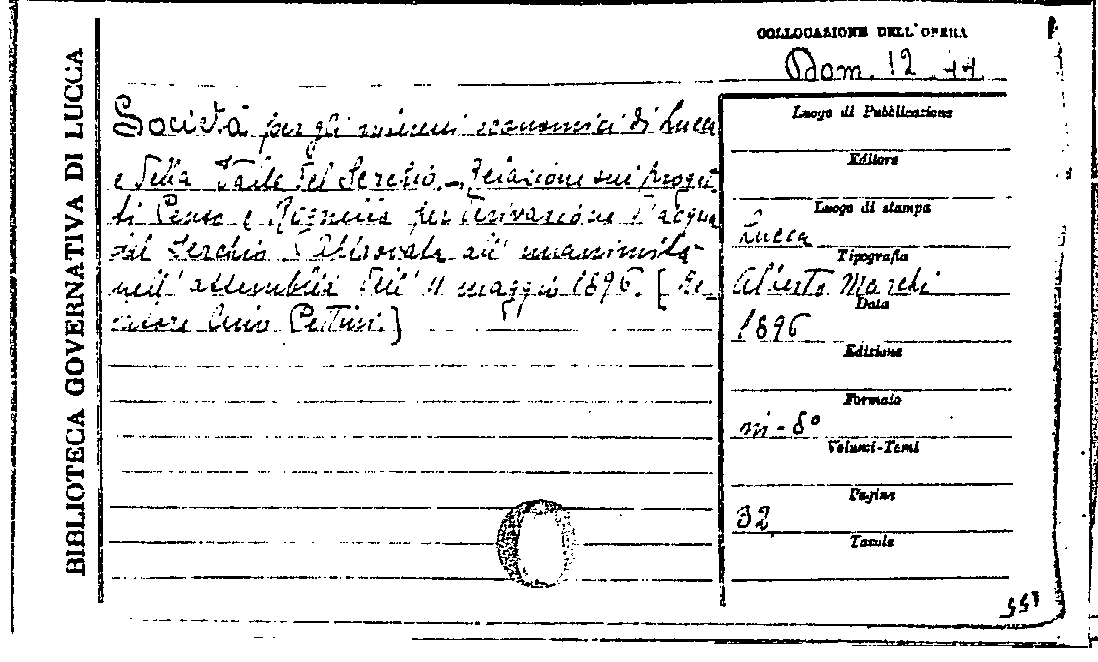 BIBLIOTECA GOVERNATIVA DI LUCCA
COLLOCAZIONE DELL'OPERA
Dom. 12 44
Società per gli economici di Lucca
e della Valle del Serchio. - Relazione sui proget-
ti e per derivazione d'acqua
dal Serchio Approvata all' unanimità
nell' assemblea dell' 11 maggio 1896. [Re-
latore Pettini.]
Luogo di Pubblicazione
Editore
Luogo di stampa
Lucca
Tipografia
Alberto Marchi
Data
1896
Edizione
Formato
in-8°
Volumi-Tomi
Pagine
32
Tavole